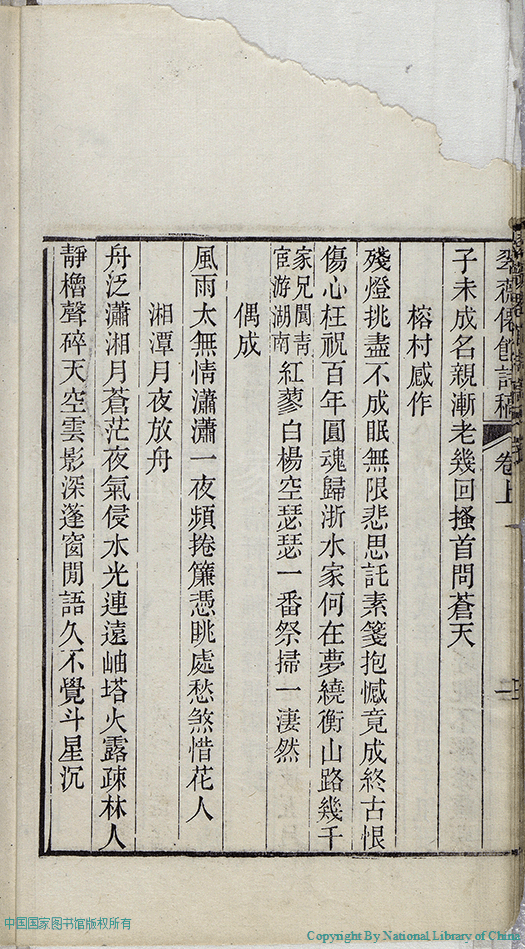 子未成名親漸老幾回搔首問蒼天
榕村感作
殘燈挑盡不成眠無限悲思託素箋抱憾竟成終古恨
傷心枉祝百年圓魂歸浙水家何在夢繞衡山路幾千
家兄聞青宦游湖南紅蓼白楊空瑟瑟一番祭掃一淒然
偶成
風雨太無情瀟瀟一夜頻捲簾憑眺處愁煞惜花人
湘潭月夜放舟
舟泛瀟湘月蒼茫夜氣侵水光連遠岫塔火露疎林人
靜櫓聲碎天空雲影深蓬窗閒語久不覺斗星沉
館詩稿 卷上
中国国家图书馆版权所有
Copyright By National Library of China